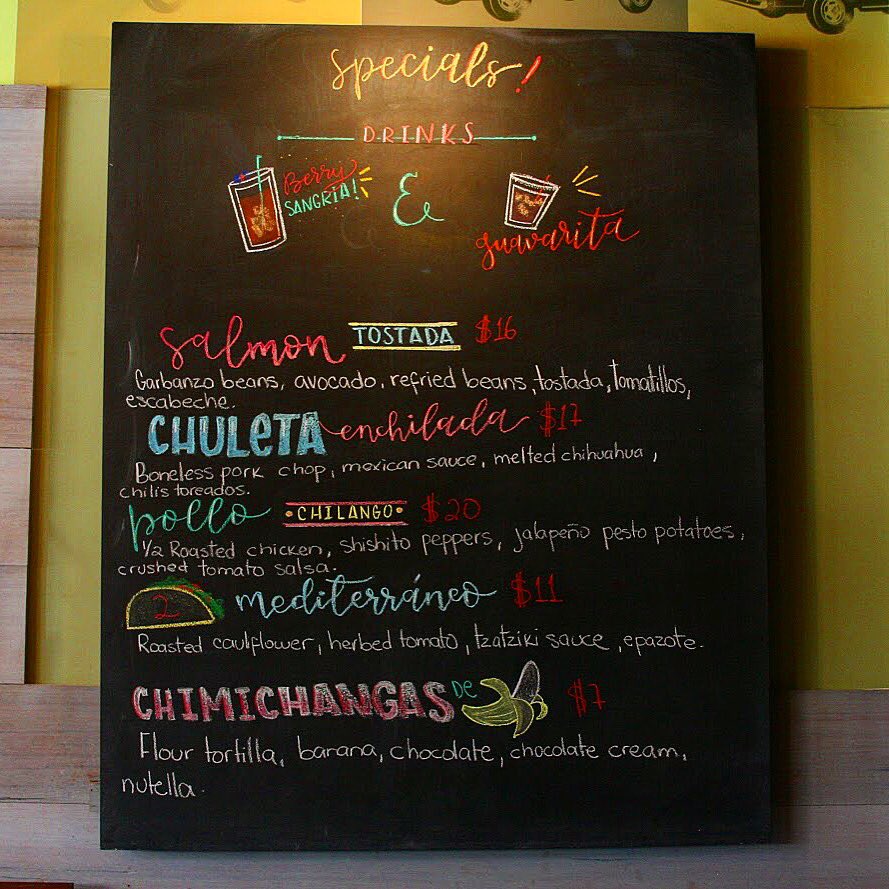 specials!
DRINKS
Berry
SANGRIA!
&
guavarita
salmon TOSTADA $16
Garbanzo beans, avocado, refried beans, tostada, tomatillos,
escabeche.
CHULETA enchilada $17
Boneless pork chop, mexican sauce, melted chihuahua,
chilis toreados.
pollo •CHILANGO• $20
1/2 Roasted chicken, shishito peppers, jalapeño pesto potatoes,
crushed tomato salsa.
2 mediterráneo $11
Roasted caulflower, herbed tomato, tzatziki sauce, epazote.
CHIMICHANGAS De $7
Flour tortilla, barana, chocolate, chocolate cream,
nutella.